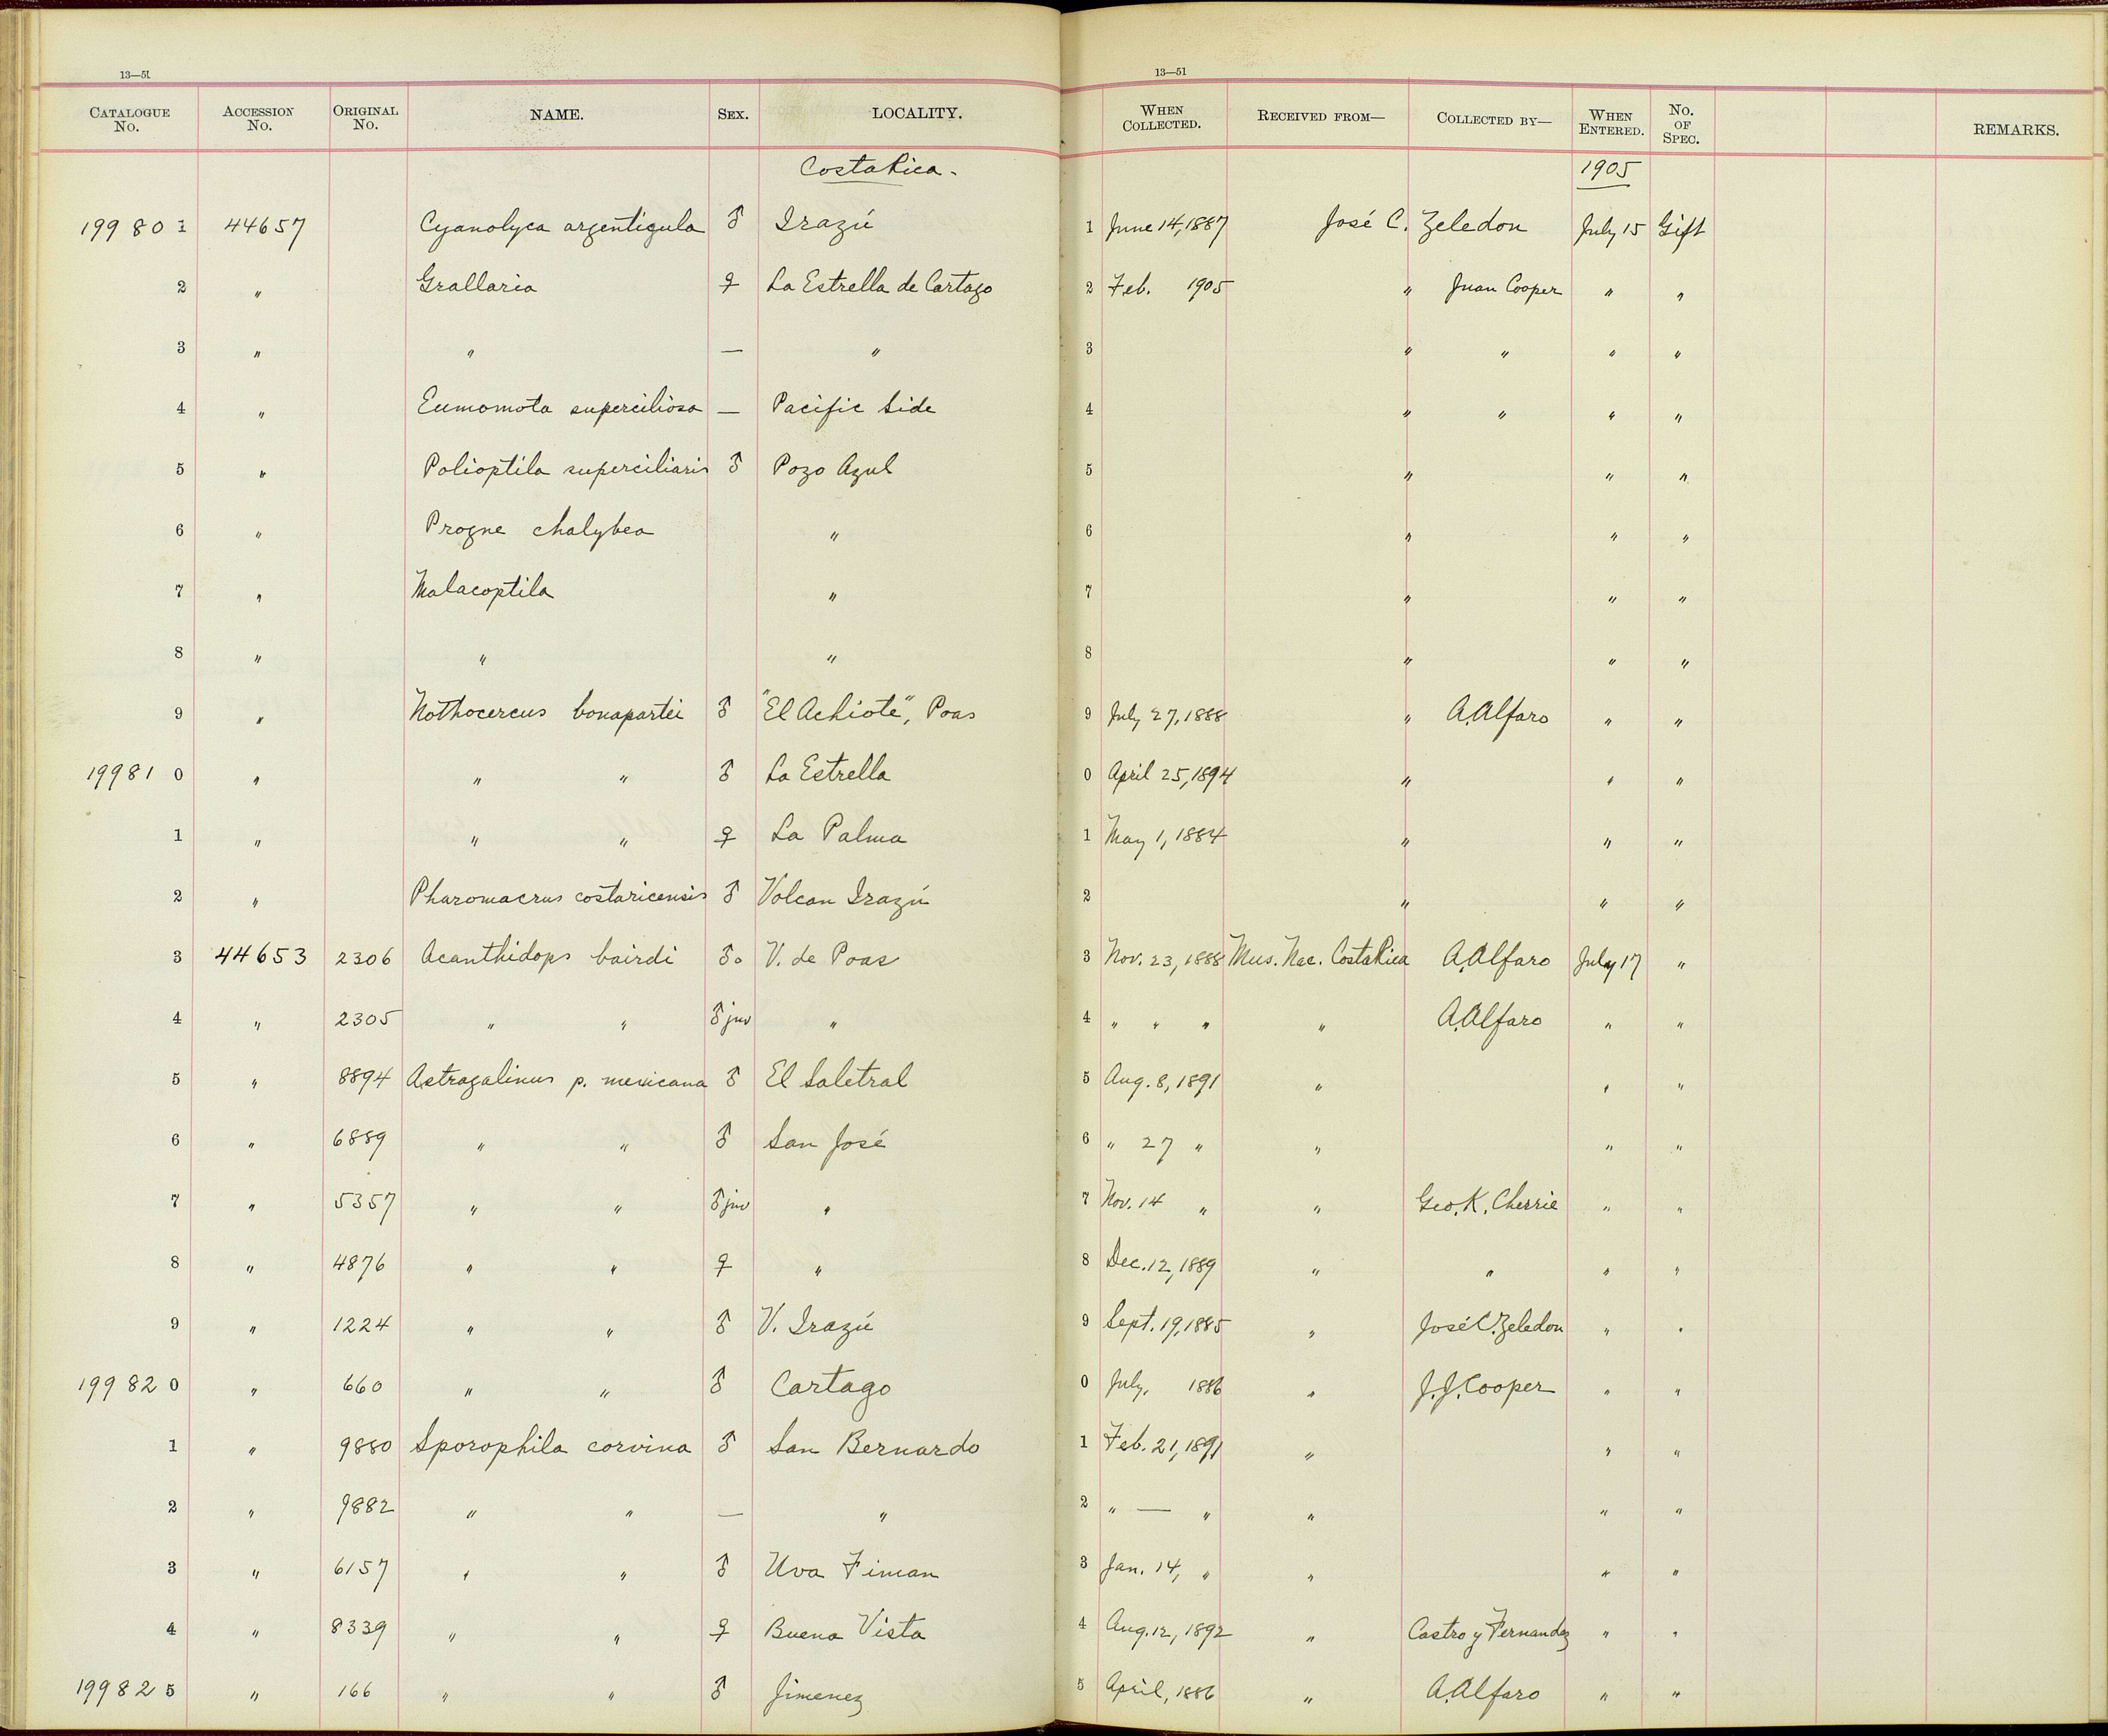 13—51 13—51
CATALOGUE No. ACCESSION No. ORIGINAL No. NAME. SEX. LOCALITY. WHEN COLLECTED. RECEIVED FROM— COLLECTED BY— WHEN ENTERED. No. OF SPEC. REMARKS.
Costa Rica. 1905
199801 44657 Cyanolyca argentigula ♂ Irazú 1 June 14, 1887 José C. Zeledon July 15 Gift
2 " Grallaria ♀ La Estrella de Cartago 2 Feb. 1905 " Juan Cooper " "
3 " " — " 3 " " " "
4 " Eumomota superciliosa — Pacific Side 4 " " " "
5 " Polioptila superciliaris ♂ Pozo Azul 5 " " "
6 " Progne chalybea " 6 " " "
7 " Malacoptila " 7 " " "
8 " " " 8 " " "
9 " Nothocercus bonapartei ♂ "El Achiote", Poas 9 July 27, 1888 " A. Alfaro " "
199810 " " " ♂ La Estrella 0 April 25, 1894 " " "
1 " " " ♀ La Palma 1 May 1, 1884 " " "
2 " Pharomacrus costaricensis ♂ Volcan Irazú 2 " " "
3 44653 2306 Acanthidops bairdi ♂o V. de Poas 3 Nov. 23, 1888 Mus. Nac. Costa Rica A. Alfaro July 17 "
4 " 2305 " " ♂ juv " 4 " " " " A. Alfaro " "
5 " 8894 Astragalinus p. mexicana ♂ El Saletral 5 Aug. 8, 1891 " " "
6 " 6889 " " ♂ San José 6 " 27 " " " "
7 " 5357 " " ♂ juv " 7 Nov. 14 " " Geo. K. Cherrie " "
8 " 4876 " " ♀ " 8 Dec. 12, 1889 " " " "
9 " 1224 " " ♂ V. Irazú 9 Sept. 19, 1885 " José C. Zeledon " "
199820 " 660 " " ♂ Cartago 0 July, 1886 " J. J. Cooper " "
1 " 9880 Sporophila corvina ♂ San Bernardo 1 Feb. 21, 1891 " " "
2 " 9882 " " — " 2 " — " " " "
3 " 6157 " " ♂ Uva Finan 3 Jan. 14, " " " "
4 " 8339 " " ♀ Buena Vista 4 Aug. 12, 1892 " Castro y Fernandez " "
199825 " 166 " " ♂ Jimenez 5 April, 1886 " A. Alfaro " "